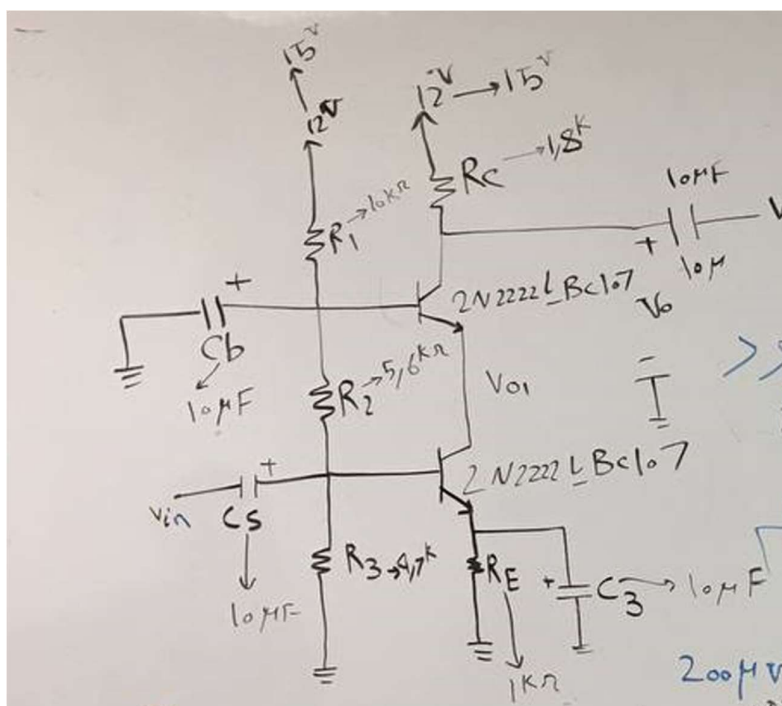 15V
12V
12V → 15V
RC → 1,8K
R1 → 10KΩ
10μF
+
10μ
V
2N2222 L BC107
Vo
-
+
Cb
10μF
R2 → 5,6KΩ
Vo1
2N2222 L BC107
Vin
+
CS
10μF
R3 → 4,7K
RE
1KΩ
+
C3 → 10μF
200μV